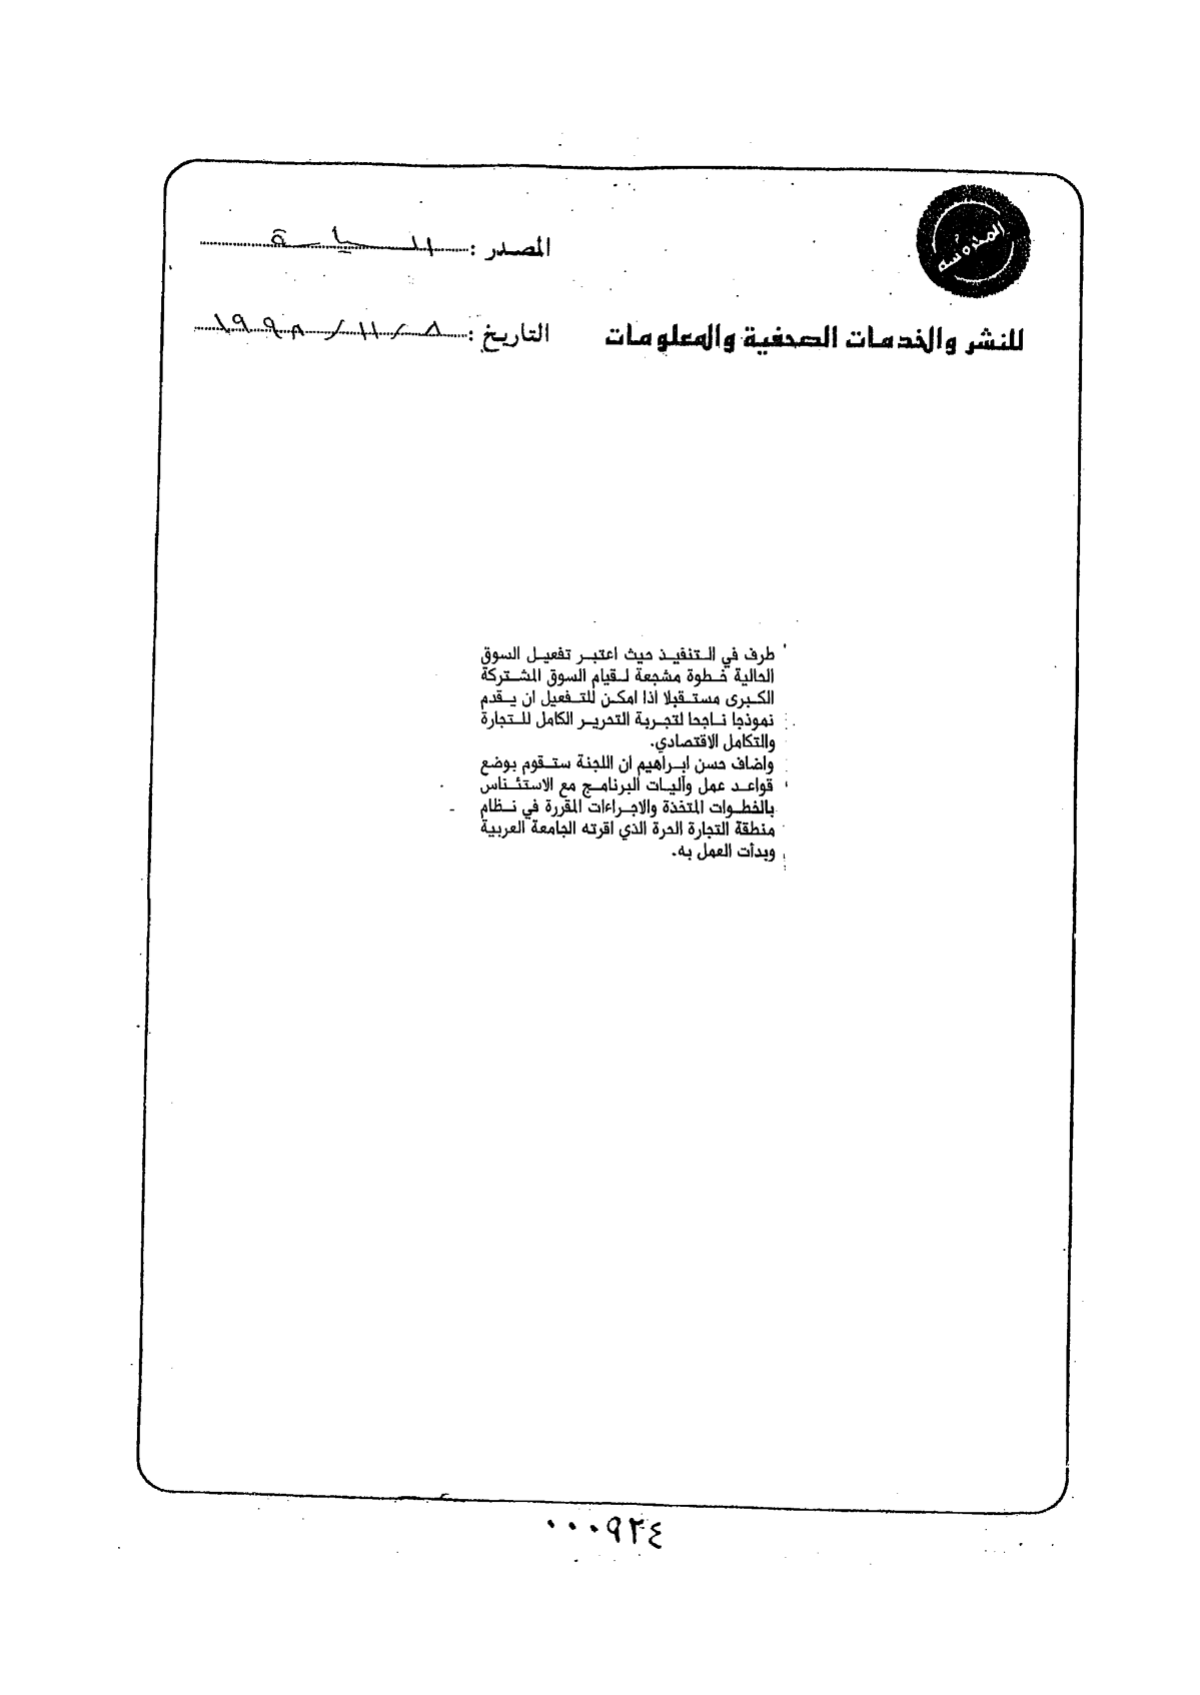 المصدر : الحياة
التاريخ : ٨ / ١١ / ١٩٩٨
للنشر والخدمات الصحفية والمعلومات
طرف في التنفيذ حيث اعتبر تفعيل السوق
الحالية خطوة مشجعة لقيام السوق المشتركة
الكبرى مستقبلا اذا امكن للتفعيل ان يقدم
نموذجا ناجحا لتجربة التحرير الكامل للتجارة
والتكامل الاقتصادي.
واضاف حسن ابراهيم ان اللجنة ستقوم بوضع
قواعد عمل وآليات البرنامج مع الاستئناس
بالخطوات المتخذة والاجراءات المقررة في نظام
منطقة التجارة الحرة الذي اقرته الجامعة العربية
وبدأت العمل به.
٠٠٠٩٢٤